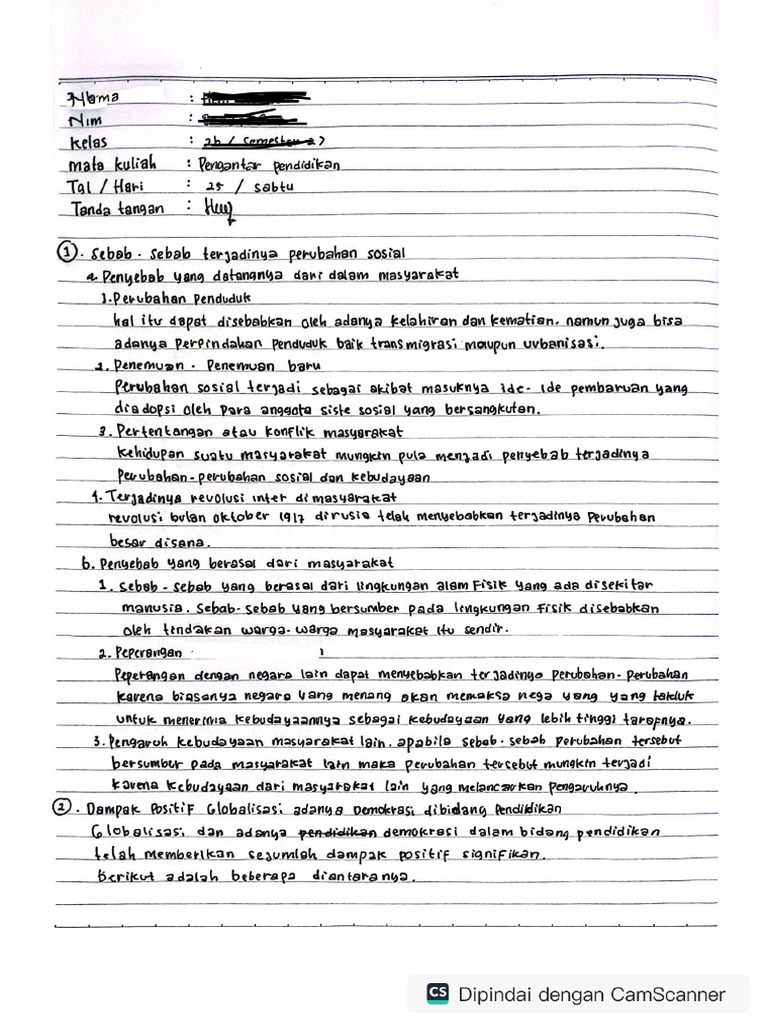 Nama :
Nim :
Kelas : 2b / Semester 2)
Mata kuliah : Pengantar pendidikan
Tgl / Hari : 25 / sabtu
Tanda tangan :
1. Sebab - Sebab terjadinya perubahan sosial
a. Penyebab yang datangnya dari dalam masyarakat
1. Perubahan penduduk
hal itu dapat disebabkan oleh adanya kelahiran dan kematian. namun juga bisa
adanya perpindahan penduduk baik transmigrasi maupun urbanisasi.
2. Penemuan - Penemuan baru
Perubahan sosial terjadi sebagai akibat masuknya ide - ide pembaruan yang
diadopsi oleh para anggota siste sosial yang bersangkutan.
3. Pertentangan atau konflik masyarakat
kehidupan suatu masyarakat mungkin pula menjadi penyebab terjadinya
perubahan-perubahan sosial dan kebudayaan
4. Terjadinya revolusi inter di masyarakat
revolusi bulan oktober 1917 dirusia telah menyebabkan terjadinya perubahan
besar disana.
b. Penyebab yang berasal dari masyarakat
1. Sebab - sebab yang berasal dari lingkungan alam fisik yang ada disekitar
manusia. Sebab-sebab yang bersumber pada lingkungan fisik disebabkan
oleh tindakan warga-warga masyarakat itu sendir.
2. Peperangan
Peperangan dengan negara lain dapat menyebabkan terjadinya perubahan-perubahan
karena biasanya negara yang menang akan memaksa nega yang yang takluk
untuk menerima kebudayaannya sebagai kebudayaan yang lebih tinggi tarafnya.
3. Pengaruh kebudayaan masyarakat lain. apabila sebab-sebab perubahan tersebut
bersumber pada masyarakat lain maka perubahan tersebut mungkin terjadi
karena kebudayaan dari masyarakat lain yang melancarkan pengaruhnya.
2. Dampak Positif Globalisasi adanya Demokrasi dibidang Pendidikan
Globalisasi dan adanya pendidikan demokrasi dalam bidang pendidikan
telah memberikan sejumlah dampak positif signifikan.
Berikut adalah beberapa diantaranya.
CS Dipindai dengan CamScanner